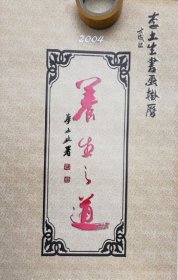 2004
李土生书画挂历
养生之道
李土生署